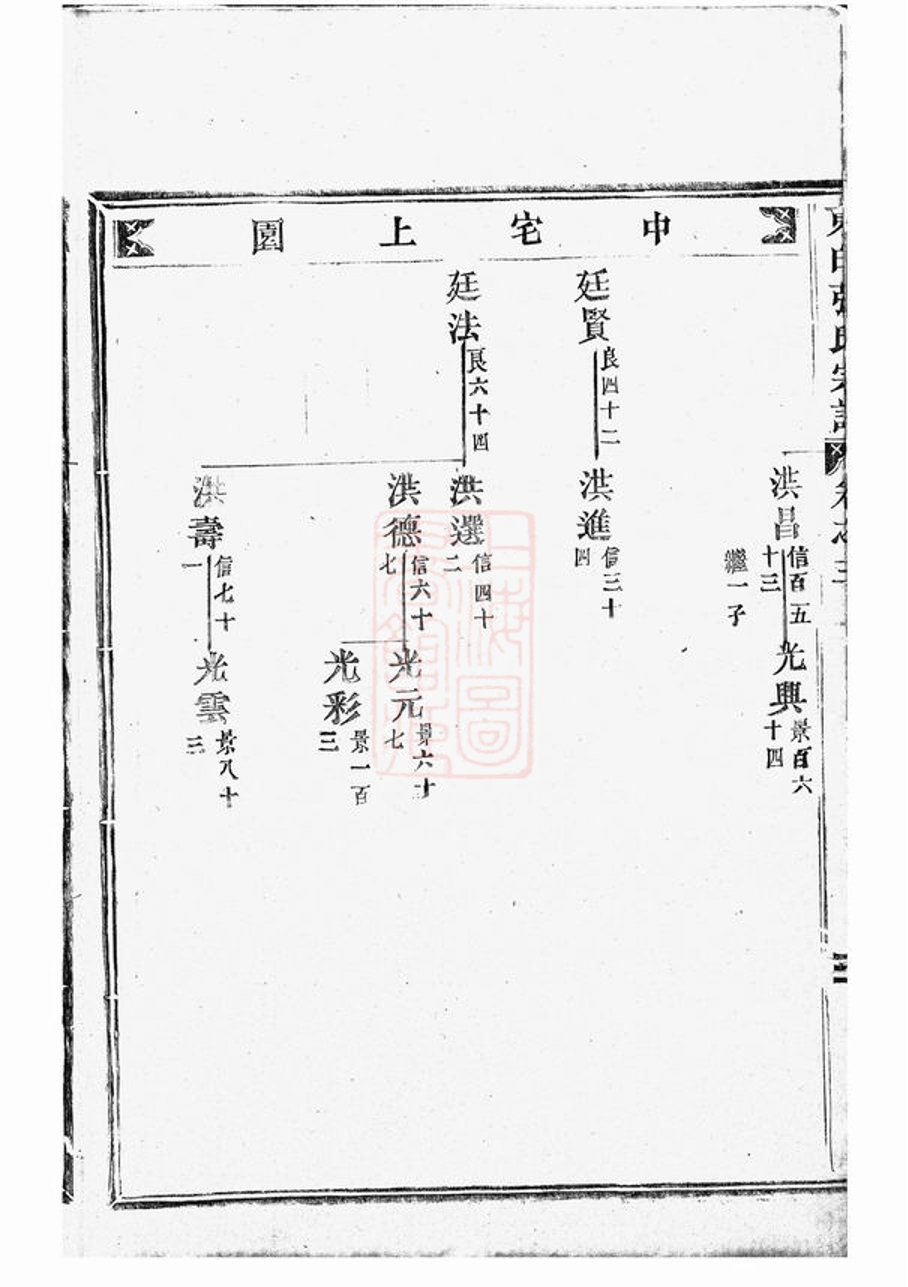 中宅上園
東白張氏宗譜
洪昌 信百五十三
繼一子
光興 景百六十四
廷賢 良四十二
洪進 信三十四
廷法 良六十四
洪選 信四十二
洪德 信六十七
光元 景六十七
光彩 景一百三
洪壽 信七十一
光雲 景八十三
上海圖書館藏